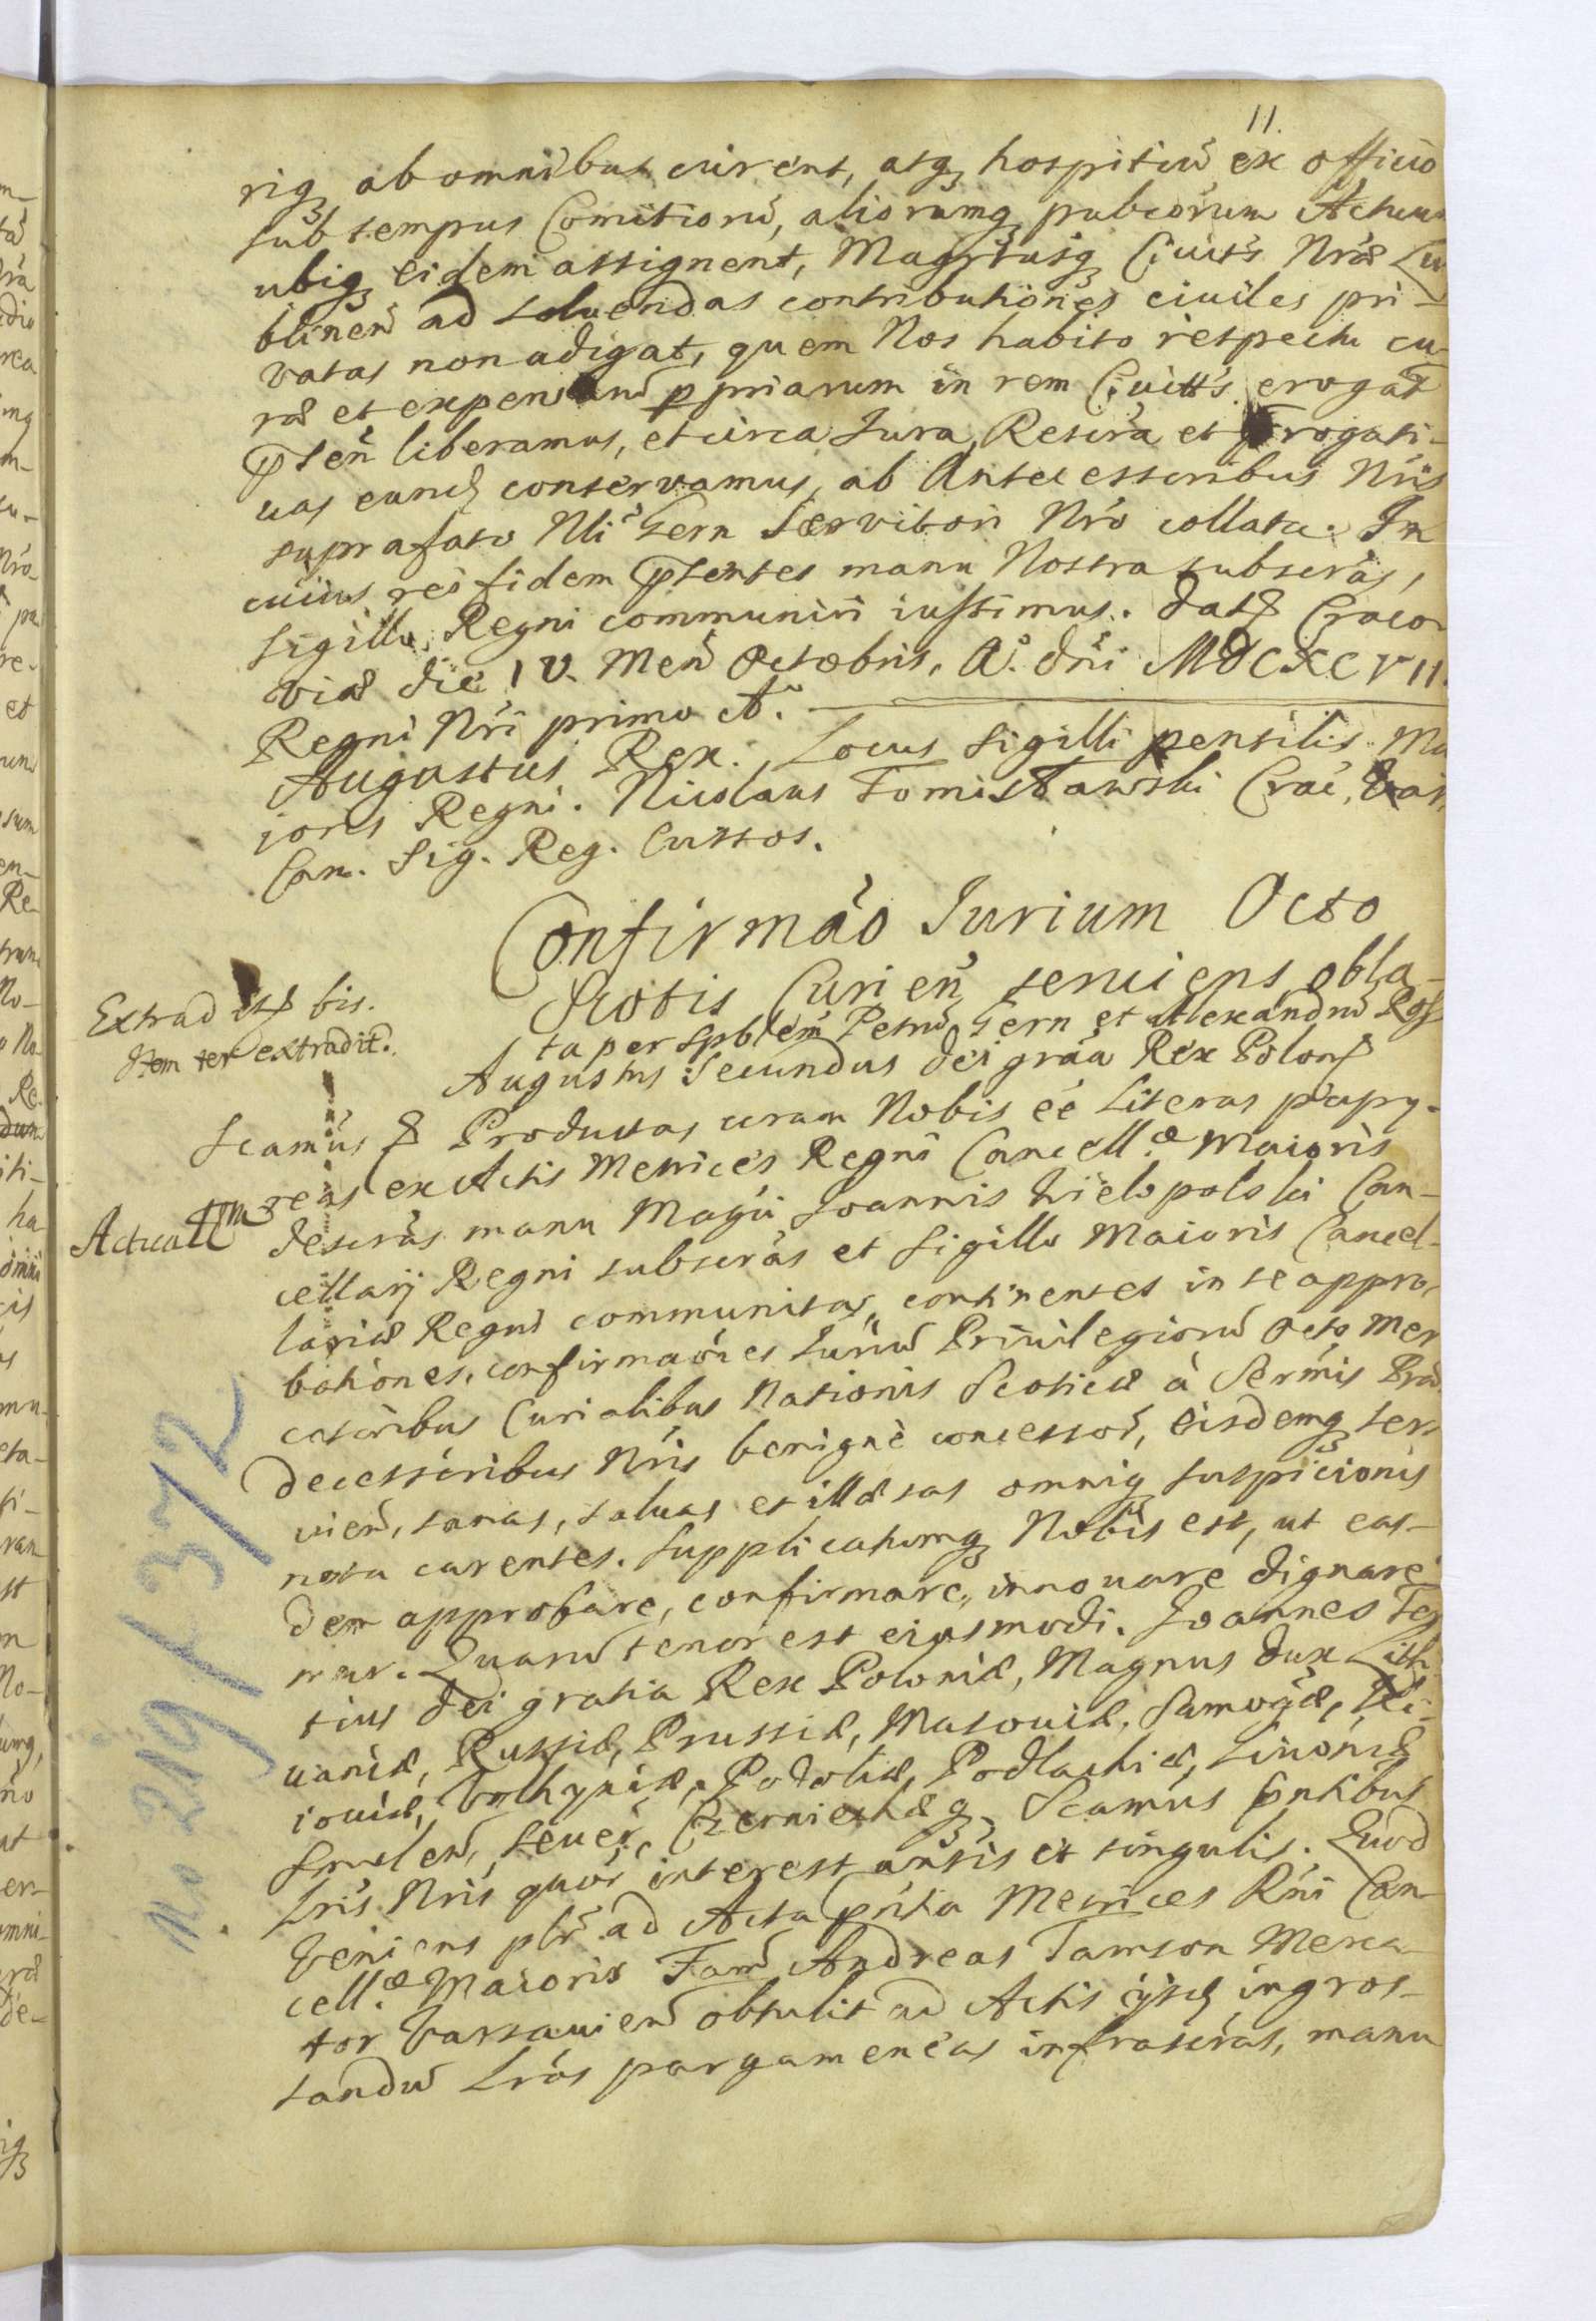 11.
riq3 ab omnibus curent, atq3 hospitiu ex officio
sub tempus Comitioru, aliorumq3 pubcorum Actuu
ubiq3 eidem assignent, Magrtusq3 Ciuits Nræ Lu
blinen ad soluendas contributiones ciuiles pri-
vatas non adigat, quem Nos habito respectu cu-
ræ et expensaru ppriarum in rem Ciuitts erogat
pten liberamus, et circa Jura, Rescra et prrogati-
uas eund conservamus, ab Antecessoribus Nris
suprafato Nli Gern Servitori Nro collata. In
cuius rei fidem ptentes manu Nostra subscras,
Sigillo Regni communiri iussimus. Dat Craco-
viæ die IV. Men Octobris, Ao. dni MDCXCVII.
Regni Nri primo Ao.
Augustus Rex. Locus Sigilli pensilis Ma
joris Regni. Nicolaus Tomisławski Crac,
Can. Sig. Reg. Custos.
Confirmao Jurium Octo
Scotis Curien seruiens obla-
ta per Spblem Petru Gern et Alexandru Ros
Extradit bis.
Item ter extradit.
Augustus Secundus Dei graa Rex Polon
Scamus Productas coram Nobis ee Literas papy-
reas ex Actis Metrices Regni Cancellæ Maioris
Acticattm
descras manu Magci Joannis Wielopolski Can-
cellarij Regni subscras et Sigillo Maioris Cancel-
lariæ Regni communitas, continentes in se appro-
bationes, confirmaoes Juriu Priuilegioru octo Mer
catoribus Curialibus Nationis Scoticæ à Sermis Præ
decessoribus Nris benignè concessor, eisdemq3 ser-
uien, sanas, saluas et illæsas omniq3 suspicionis
nota carentes. Supplicatumq3 Nobis est, ut eas-
dem approbare, confirmare, innouare dignare
mur. Quaru tenor est eiusmodi. Joannes Ter
tius Dei gratia Rex Poloniæ, Magnus Dux Lith
uaniæ, Russiæ, Prussiæ, Masouiæ, Samogæ, Ki-
iouiæ, Volhyniæ, Podoliæ, Podlachiæ, Liuoniæ
Smolen, Seuer, Czerniechæq3. Scamus pntibus
Lris Nris quor interest uniss et singulis. Quod
Veniens plr ad Acta pnta Metrices Rni Can-
cellæ Maioris Fam Andreas Tamson Merca-
tor Varsauien obtulit ad Actis ijsd ingros-
sandu Lras pargameneas infrascras, manu
No 219/372